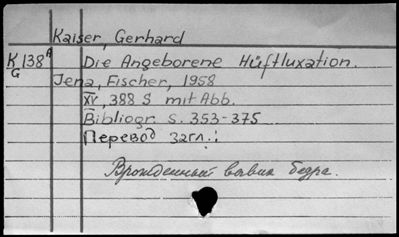 Kaiser, Gerhard
K 138 A
G
Die Angeborene Hüftluxation.
Jena, Fischer, 1958
XV, 388 S mit Abb.
Bibliogr. S. 353-375
Перевод загл.:
Врожденный вывих бедра.